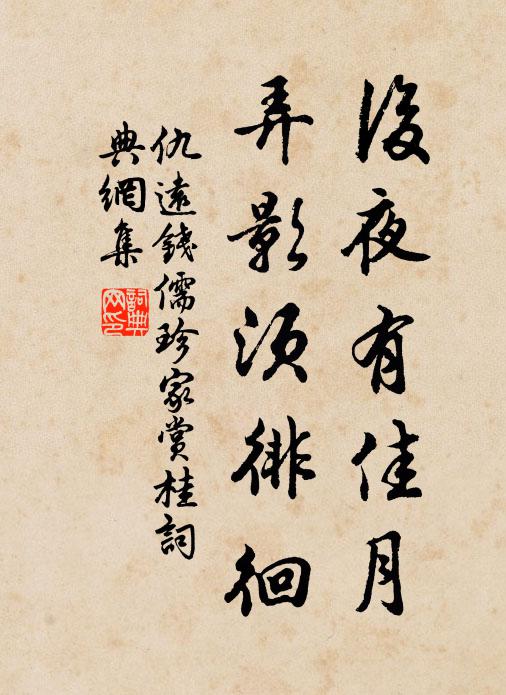 後夜有佳月
弄影須徘徊
仇遠錢儒珍家賞桂詞
典網集
詞典網印